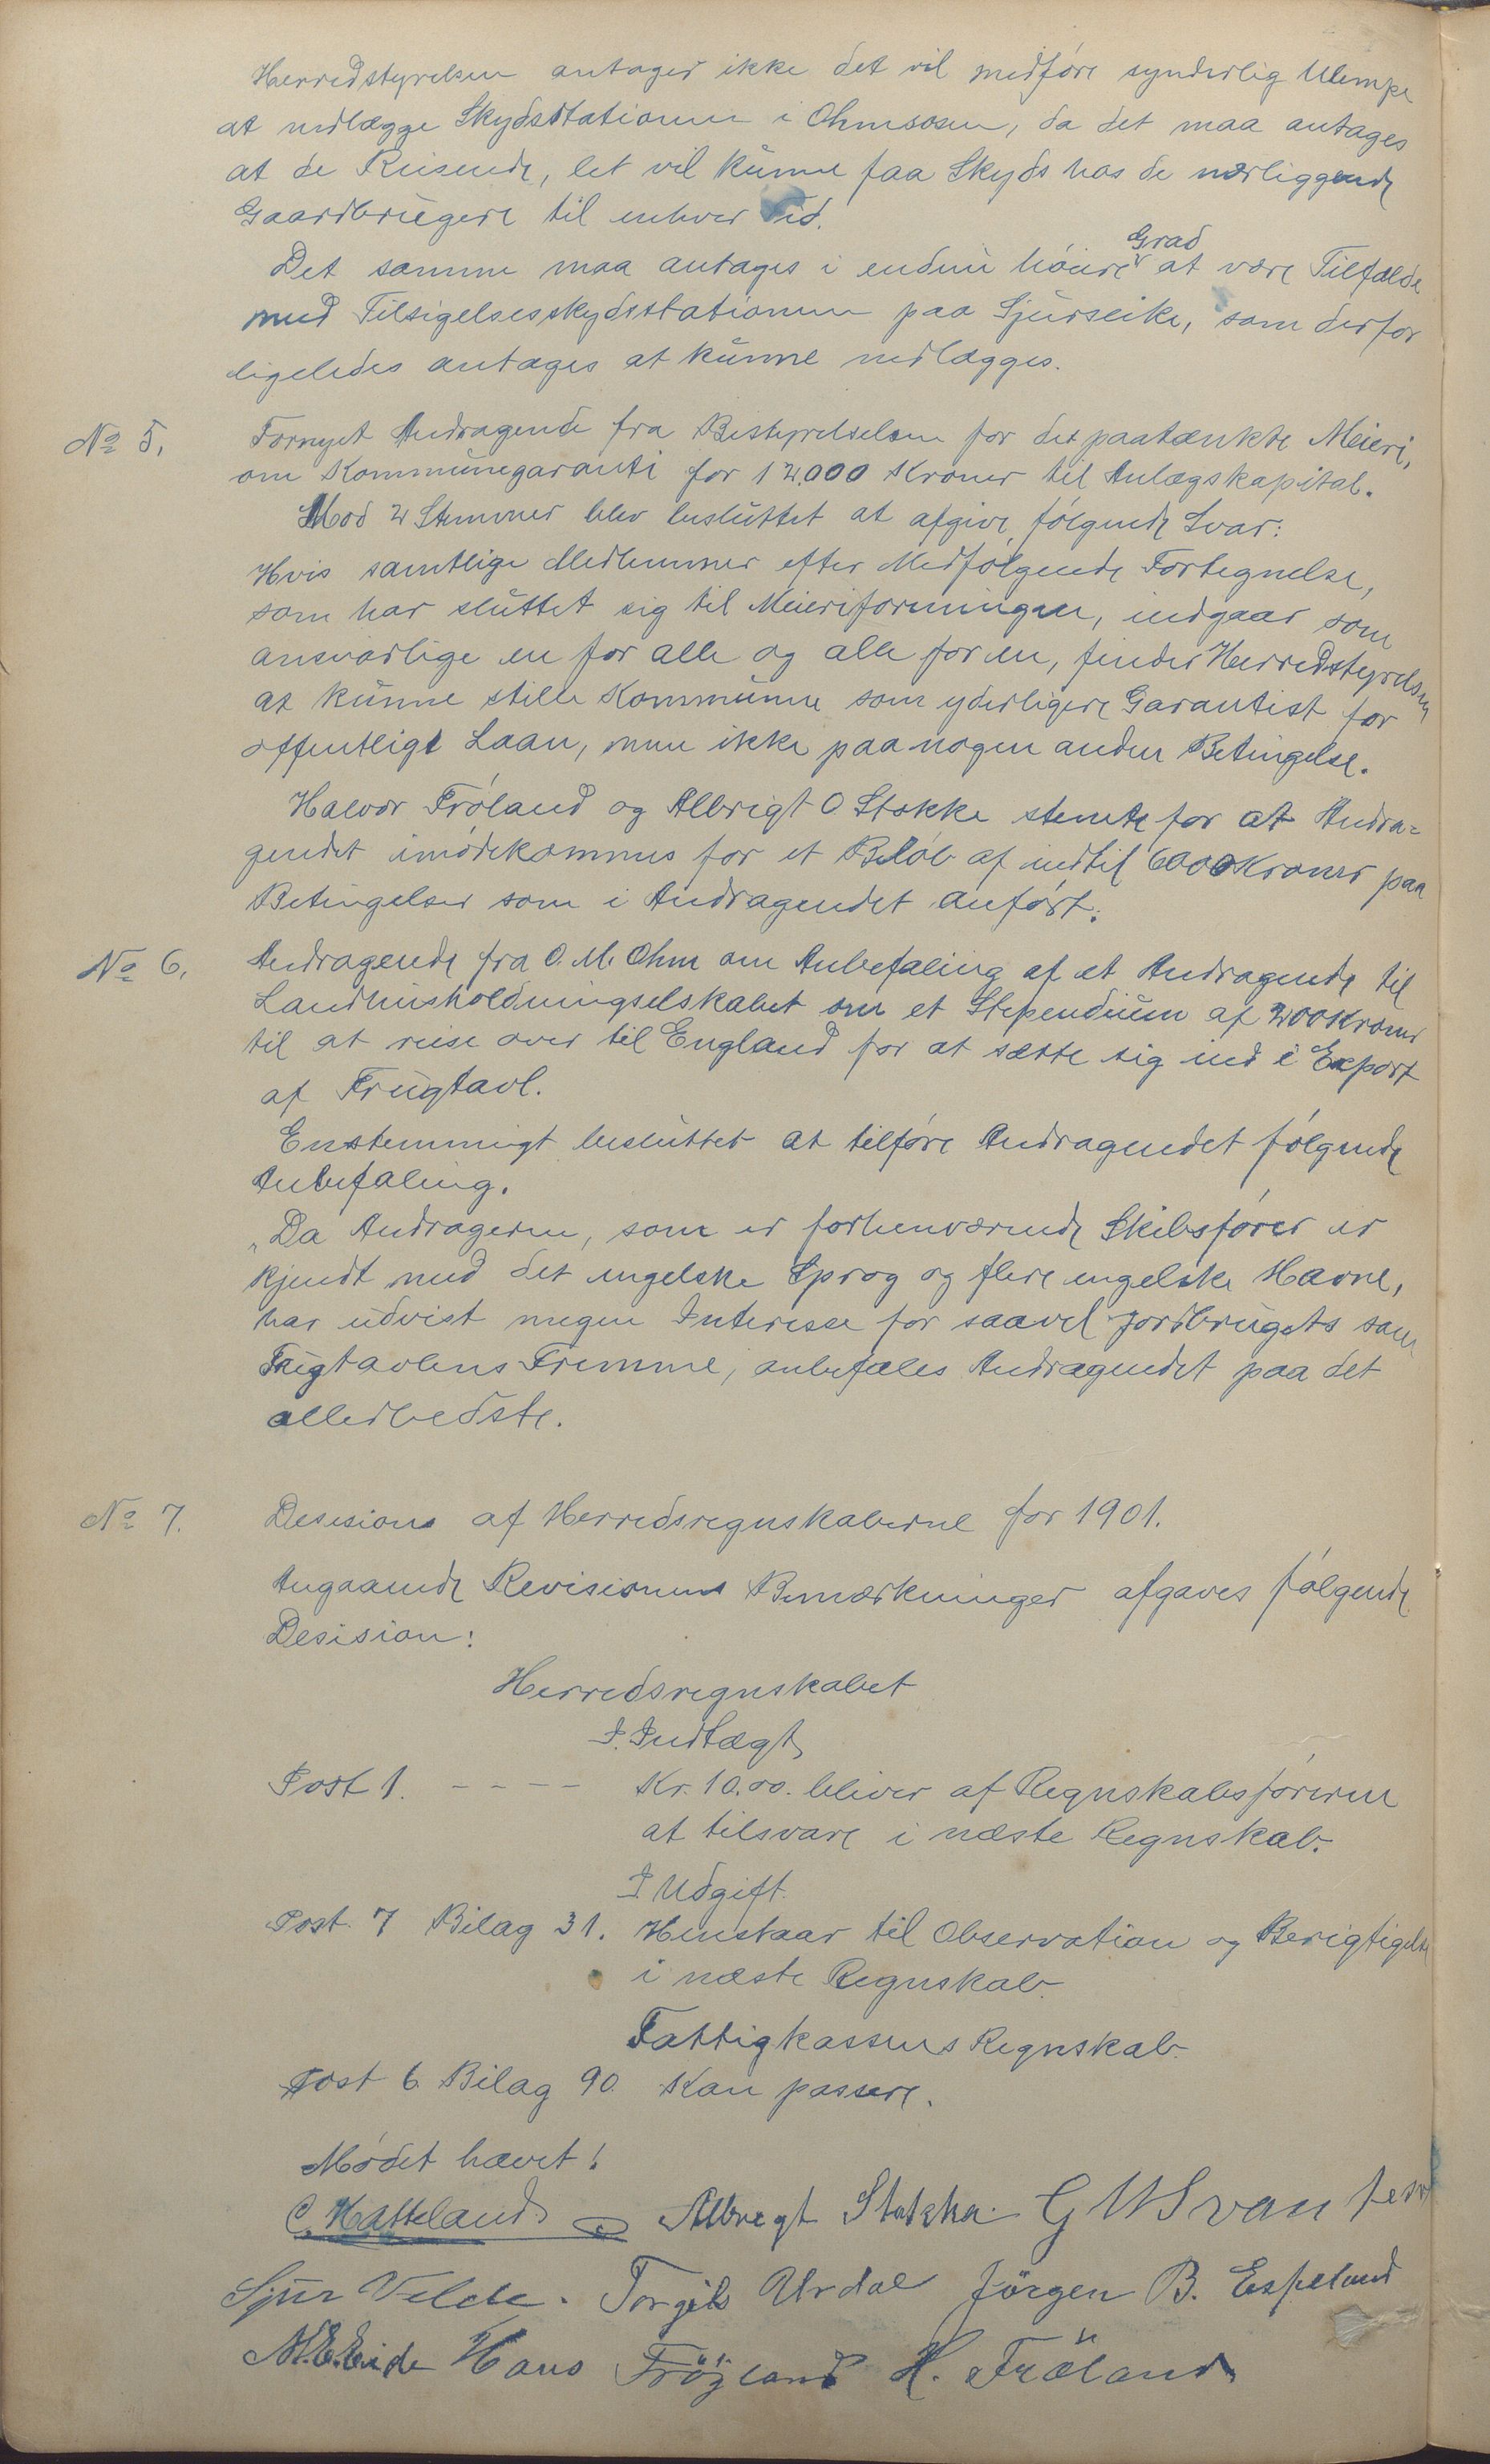 Herredstyrelsen antager ikke det vil medføre synderlig Ulempe
at nedlægge Skydsstationen i Ohmsosen, da det maa antages
at de Reisende, let vil kunne faa Skyds hos de nærliggende
Gaardbrugere til enhver Tid.
Det samme maa antages i endnu høiere Grad at være Tilfælde
med Tilsigelsesskydsstationen paa Sjurseike, som derfor
ligeledes antages at kunne nedlægges.
No 5. Fornyet Andragende fra Bestyrelselsen for det paatænkte Meieri,
om Kommunegaranti for 12.000 Kroner til Anlægskapital.
Mod 2 Stemmer blev besluttet at afgive følgende Svar:
Hvis samtlige Medlemmer efter Medfølgende Fortegnelse,
som har sluttet sig til Meieriforningen, indgaar som
ansvarlige en for alle og alle for en, finder Herredstyrelsen
at kunne stille Kommunen som yderligere Garantist for
offentligt Laan, men ikke paa nogen anden Betingelse.
Halvor Frøland og Albrigt O Stokke stemte for at Andra=
gendet imødekommes for et Beløb af indtil 6000 Kroner paa
Betingelser som i Andragendet anført.
No 6. Andragende fra O. M. Ohm om Anbefaling af et Andragende til
Landhusholdningselskabet om et Stependium af 200 Kroner
til at reise over til England for at sætte sig ind i Export
af Frugtavl.
Enstemmigt besluttet at tilføre Andragendet følgende
Anbefaling.
„Da Andrageren, som er forhenværende Skibsfører er
kjendt med det engelske Sprog og flere engelske Havne,
har udvist megen Interesse for saavel Jordbrugets som
Frugtavlens Fremme, anbefales Andragendet paa det
allerbedste.
No 7. Desisions af Herredsregnskaberne for 1901.
Angaaende Revisionens Bemærkninger afgaves følgende
Desision:
Herredsregnskabet
I. Indtægt
Post 1. - - - - Kr. 10.00. bliver af Regnskabsføreren
at tilsvare i næste Regnskab.
I Udgift
Post 7 Bilag 31. Henstaar til Observation og Berigtigelse
i næste Regnskab.
Fattigkassens Regnskab.
Post 6 Bilag 90 Kan passere.
Mødet hævet!
C. Hatteland Albregt Stokka G W Svan
Sjur Velde. Torgils Urdal Jörgen B. Espeland
N.E. Eide Hans Fröyland H. Fröland